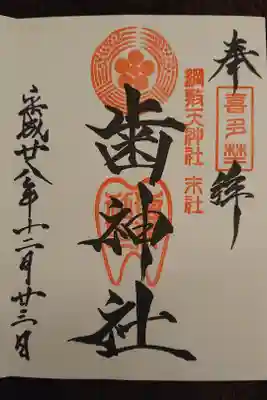 奉拝
喜多埜
綱敷天神社 末社
歯神社
平成廿八年十二月廿三日